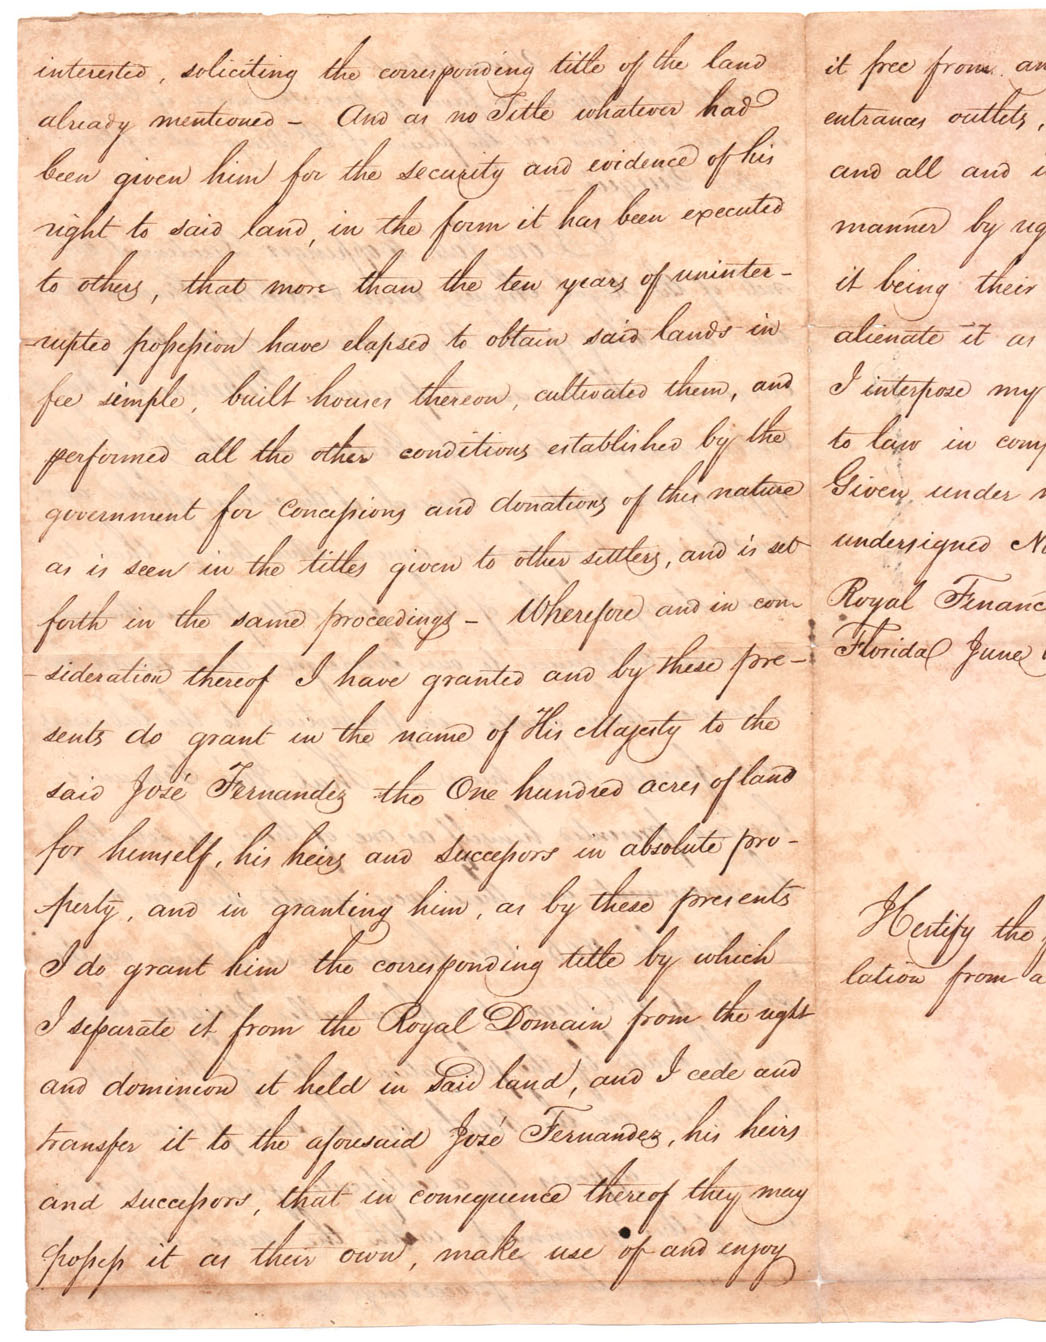 interested, soliciting the corresponding title of the land
already mentioned - And as no Title whatever had
been given him for the security and evidence of his
right to said land, in the form it has been executed
to others, that more than the ten years of uninter-
-rupted possession have elapsed to obtain said lands in
fee simple, built houses thereon, cultivated them, and
performed all the other conditions established by the
government for concessions and donations of this nature
as is seen in the titles given to other settlers, and is set
forth in the same proceedings - Wherefore and in con
-sideration thereof I have granted and by these pre-
sents do grant in the name of His Majesty to the
said José Fernandez the One hundred acres of land
for himself, his heirs and successors in absolute pro-
perty, and in granting him, as by these presents
I do grant him the corresponding title by which
I separate it from the Royal Domain from the right
and dominion it held in Said land, and I cede and
transfer it to the aforesaid José Fernandez, his heirs
and successors, that in consequence thereof they may
possess it as their own, make use of and enjoy
it free from an
entrances outlets,
and all and
manner by
it being their
alienate it as
I interpose my
to law in
Given under
undersigned
Royal
Florida June
I Certify the
lation from a